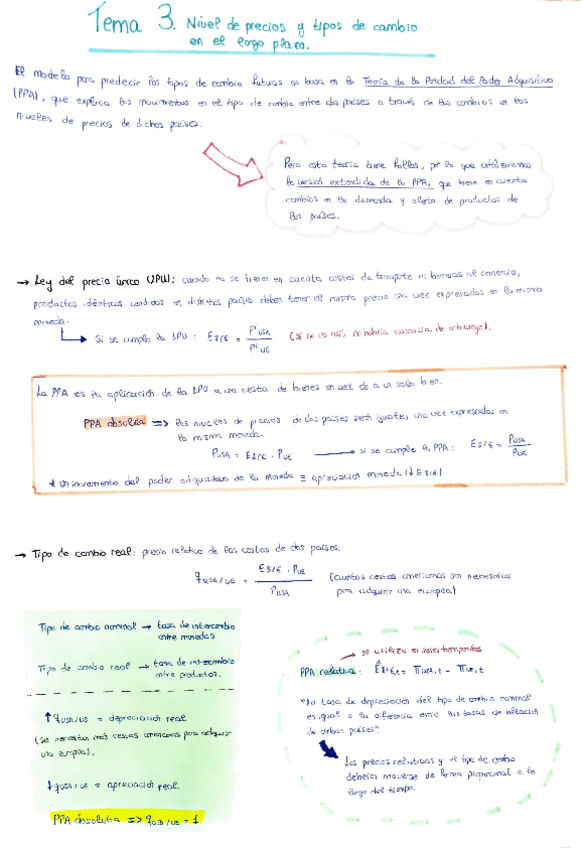 Tema 3. Nivel de precios y tipos de cambio
en el largo plazo.
El modelo para predecir los tipos de cambio futuros se basa en la Teoría de la Paridad del Poder Adquisitivo
(PPA), que explica los movimientos en el tipo de cambio entre dos países a través de los cambios en los
niveles de precios de dichos países.
Pero esta teoría tiene fallos, por lo que utilizaremos
la versión extendida de la PPA, que tiene en cuenta
cambios en la demanda y oferta de productos de
los países.
→ Ley del precio único (LPU): cuando no se tienen en cuenta costes de transporte ni barreras al comercio,
productos idénticos vendidos en distintos países deben tener el mismo precio una vez expresados en la misma
moneda.
Si se cumple la LPU: E$/€ = PⁱUSA / PⁱUE (si no es así, habría de arbitraje).
La PPA es la aplicación de la LPU a una cesta de bienes en vez de a un solo bien.
PPA absoluta => los niveles de precios de los países serán iguales una vez expresados en
la misma moneda.
PUSA = E$/€ · PUE → si se cumple la PPA: E$/€ = PUSA / PUE
* Un incremento del poder adquisitivo de la moneda ≡ apreciación moneda (↓E$/€)
→ Tipo de cambio real: precio relativo de las cestas de dos países.
qUSA/UE = E$/€ · PUE / PUSA (cuantas cestas americanas son necesarias
para adquirir una europea)
Tipo de cambio nominal → tasa de intercambio
entre monedas
Tipo de cambio real → tasa de intercambio
entre productos.
↑qUSA/UE = depreciación real
(se necesitan más cestas americanas para adquirir
una europea).
↓qUSA/UE = apreciación real.
PPA absoluta => qUSA/UE = 1
→ se utiliza en
PPA relativa: Ê$/€,t = πUSA,t - πUE,t
"la tasa de depreciación del tipo de cambio nominal
es igual a la diferencia entre las tasas de inflación
de ambos países"
Los precios relativos y el tipo de cambio
deberían moverse de forma proporcional a lo
largo del tiempo.